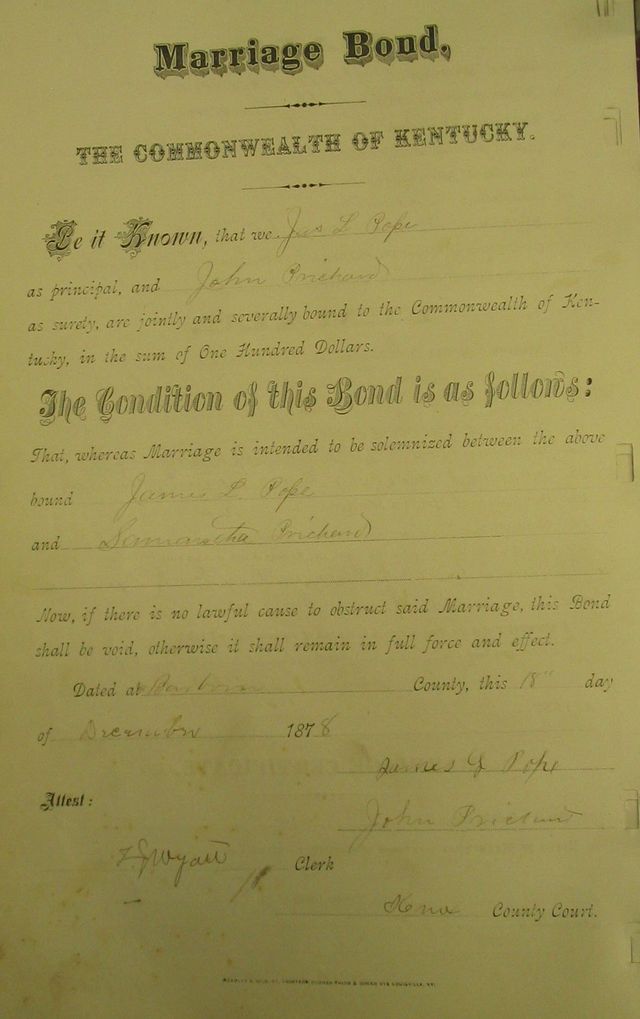 Marriage Bond,
THE COMMONWEALTH OF KENTUCKY.
Be it Known, that we Jas L Pope
as principal, and John Prichard
as surety, are jointly and severally bound to the Commonwealth of Ken-
tucky, in the sum of One Hundred Dollars.
The Condition of this Bond is as follows:
That, whereas Marriage is intended to be solemnized between the above
bound James L. Pope
and Samantha Prichard
Now, if there is no lawful cause to obstruct said Marriage, this Bond
shall be void, otherwise it shall remain in full force and effect.
Dated at County, this 18" day
of December 1878
James L Pope
Attest:
John Prichard
Wyatt Clerk
Knox County Court.